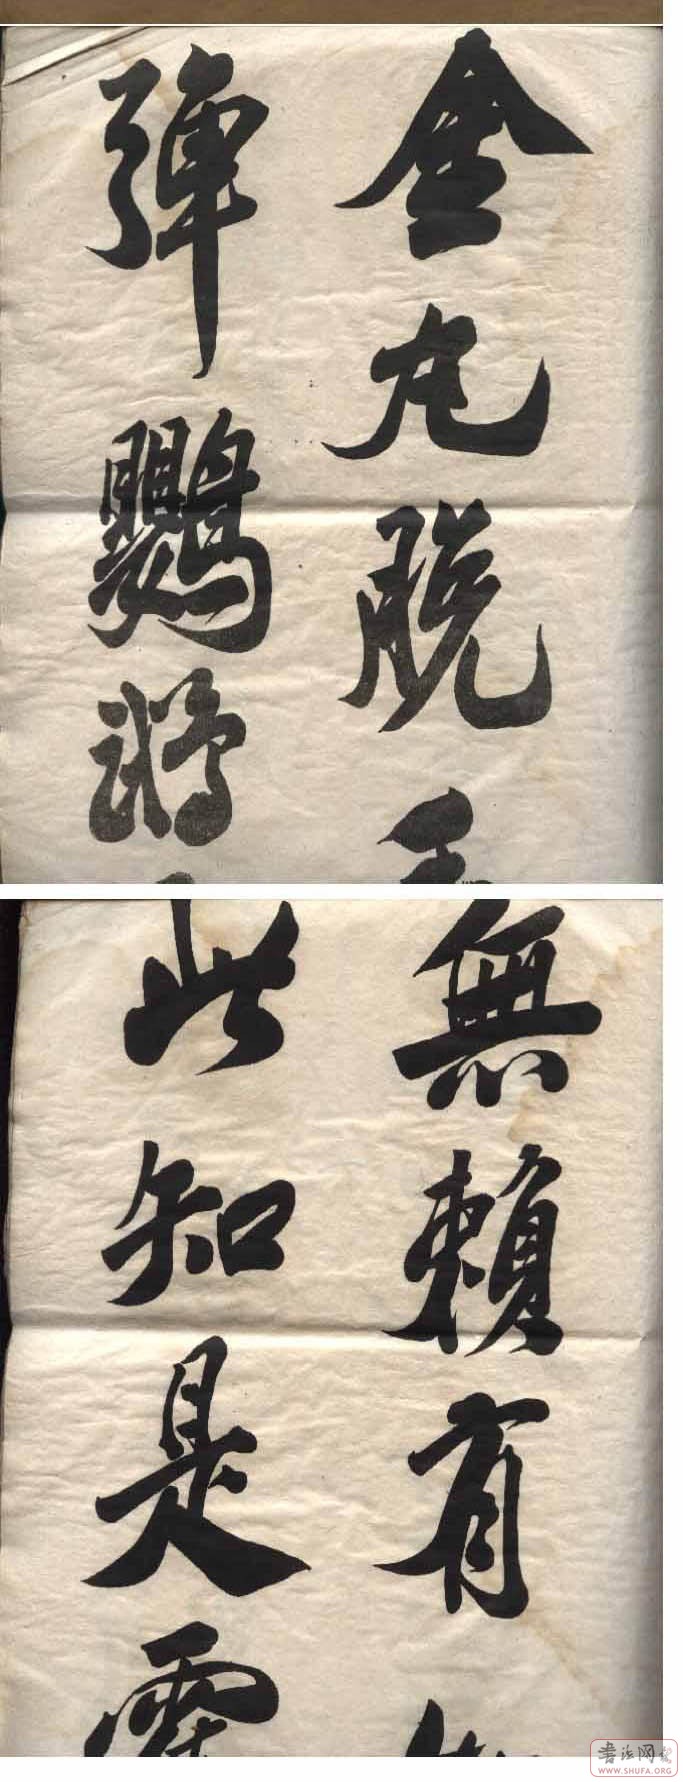 金丸脱
彈鸚
無賴有
此知是
書法网
WWW.SHUFA.ORG